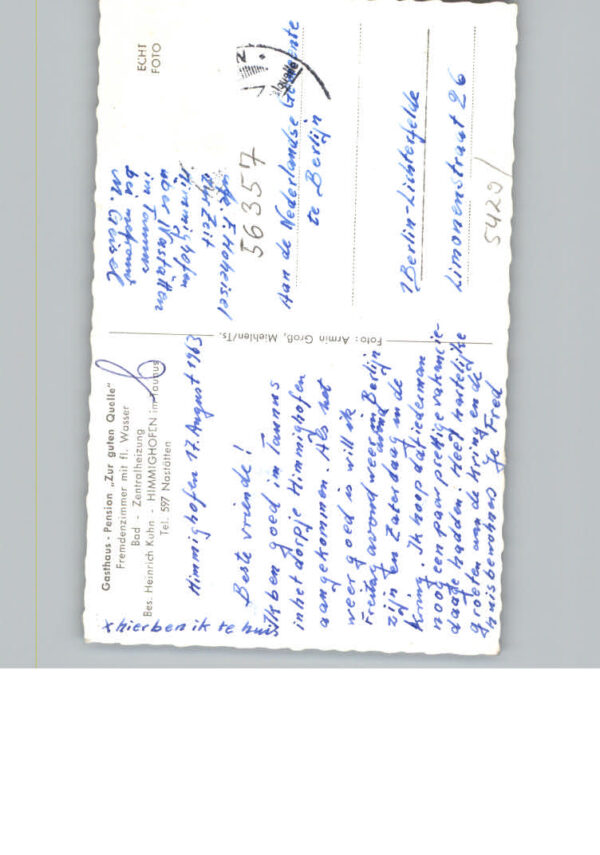 Gasthaus - Pension „Zur guten Quelle"
Fremdenzimmer mit fl. Wasser
Bad - Zentralheizung
Bes. Heinrich Kuhn - HIMMIGHOFEN im Taunus
Tel. 597 Nastätten
x hier ben ik te huis
Himmighofen 17. August 1963
Beste vriende!
Ik ben goed im Taunus
in het dorpje Himmighofen
aangekommen. Als het
weer goed is will ik
Freitag avond wees in Berlin
zijn en Zaterdaag avond in de
Kring. Ik hoop dat iedeman
noog een paar prettige vakancie-
daage hadden. Heel hartelijke
groeten aan de Kring en de
huisbewohners Je Fred
Foto: Armin Groß, Miehlen/Ts.
ECHT
FOTO
Quelle
zur Zeit
Himmighofen
über Nastätten
im Taunus
bei
M. Geisel
56357
Aan de Nederlandse Gemeente
te Berlijn
1 Berlin-Lichterfelde
Limonenstraat 26
5429/